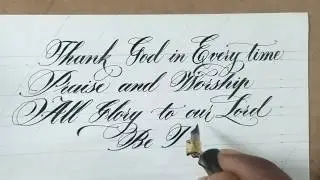 Thank God in Every time
Praise and Worship
All Glory to our Lord
Be